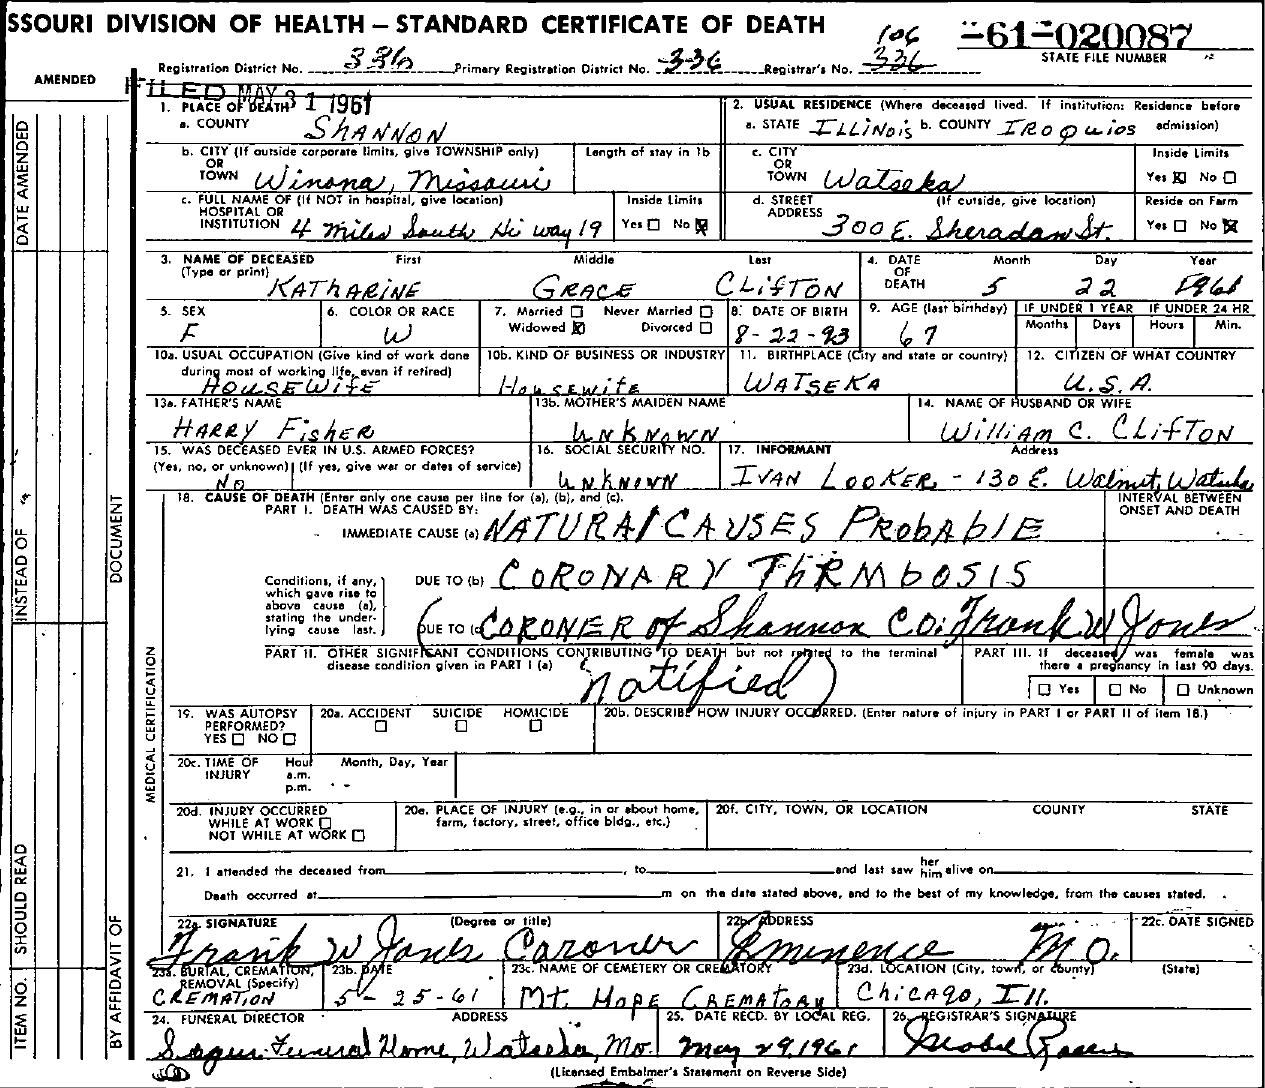 SSOURI DIVISION OF HEALTH — STANDARD CERTIFICATE OF DEATH
106
-61-020087
STATE FILE NUMBER
Registration District No. 336 Primary Registration District No. 336 Registrar's No. 336
AMENDED
FILED MAY 31 1961
1. PLACE OF DEATH
a. COUNTY SHANNON
2. USUAL RESIDENCE (Where deceased lived. If institution: Residence before admission)
a. STATE ILLINOIS b. COUNTY IROQUIOS
b. CITY (If outside corporate limits, give TOWNSHIP only) OR TOWN Winona, Missouri
Length of stay in 1b
c. CITY OR TOWN Watseka
Inside Limits
Yes ☒ No ☐
c. FULL NAME OF (If NOT in hospital, give location) HOSPITAL OR INSTITUTION 4 miles South Hi way 19
Inside Limits
Yes ☐ No ☒
d. STREET ADDRESS (If outside, give location) 300 E. Sheradan St.
Reside on Farm
Yes ☐ No ☒
3. NAME OF DECEASED (Type or print)
First Middle Last
KATHARINE GRACE CLIFTON
4. DATE OF DEATH
Month Day Year
5 22 1961
5. SEX
F
6. COLOR OR RACE
W
7. Married ☐ Never Married ☐
Widowed ☒ Divorced ☐
8. DATE OF BIRTH
8-22-93
9. AGE (last birthday)
67
IF UNDER 1 YEAR
Months Days
IF UNDER 24 HR
Hours Min.
10a. USUAL OCCUPATION (Give kind of work done during most of working life, even if retired)
HOUSEWIFE
10b. KIND OF BUSINESS OR INDUSTRY
Housewife
11. BIRTHPLACE (City and state or country)
WATSEKA
12. CITIZEN OF WHAT COUNTRY
U.S.A.
13a. FATHER'S NAME
HARRY FISHER
13b. MOTHER'S MAIDEN NAME
UNKNOWN
14. NAME OF HUSBAND OR WIFE
William C. CLIFTON
15. WAS DECEASED EVER IN U.S. ARMED FORCES?
(Yes, no, or unknown) (If yes, give war or dates of service)
NO
16. SOCIAL SECURITY NO.
UNKNOWN
17. INFORMANT Address
IVAN LOOKER - 130 E. Walnut, Watseka
18. CAUSE OF DEATH (Enter only one cause per line for (a), (b), and (c).
PART I. DEATH WAS CAUSED BY:
INTERVAL BETWEEN ONSET AND DEATH
IMMEDIATE CAUSE (a) NATURAL CAUSES PROBABLE
Conditions, if any, which gave rise to above cause (a), stating the underlying cause last.
DUE TO (b) CORONARY THRMBOSIS
DUE TO (c) (CORONER of Shannon CO. Frank W Jones
PART II. OTHER SIGNIFICANT CONDITIONS CONTRIBUTING TO DEATH but not related to the terminal disease condition given in PART I (a)
notified)
PART III. If deceased was female was there a pregnancy in last 90 days.
☐ Yes ☐ No ☐ Unknown
19. WAS AUTOPSY PERFORMED?
YES ☐ NO ☐
20a. ACCIDENT SUICIDE HOMICIDE
☐ ☐ ☐
20b. DESCRIBE HOW INJURY OCCURRED. (Enter nature of injury in PART I or PART II of item 18.)
20c. TIME OF INJURY
Hour Month, Day, Year
a.m.
p.m.
20d. INJURY OCCURRED
WHILE AT WORK ☐
NOT WHILE AT WORK ☐
20e. PLACE OF INJURY (e.g., in or about home, farm, factory, street, office bldg., etc.)
20f. CITY, TOWN, OR LOCATION COUNTY STATE
21. I attended the deceased from , to and last saw her him alive on
Death occurred at m on the date stated above, and to the best of my knowledge, from the causes stated.
22a. SIGNATURE (Degree or title)
Frank W Jones Caroner
22b. ADDRESS
Eminence MO.
22c. DATE SIGNED
23a. BURIAL, CREMATION, REMOVAL (Specify)
CREMATION
23b. DATE
5-25-61
23c. NAME OF CEMETERY OR CREMATORY
Mt. HOPE CREMATORY
23d. LOCATION (City, town, or county) (State)
Chicago, Ill.
24. FUNERAL DIRECTOR ADDRESS
Funeral Home, Watseka, Mo.
25. DATE RECD. BY LOCAL REG.
May 29, 1961
26. REGISTRAR'S SIGNATURE
Mabel
(Licensed Embalmer's Statement on Reverse Side)
DATE AMENDED
INSTEAD OF
SHOULD READ
ITEM NO.
DOCUMENT
BY AFFIDAVIT OF
MEDICAL CERTIFICATION